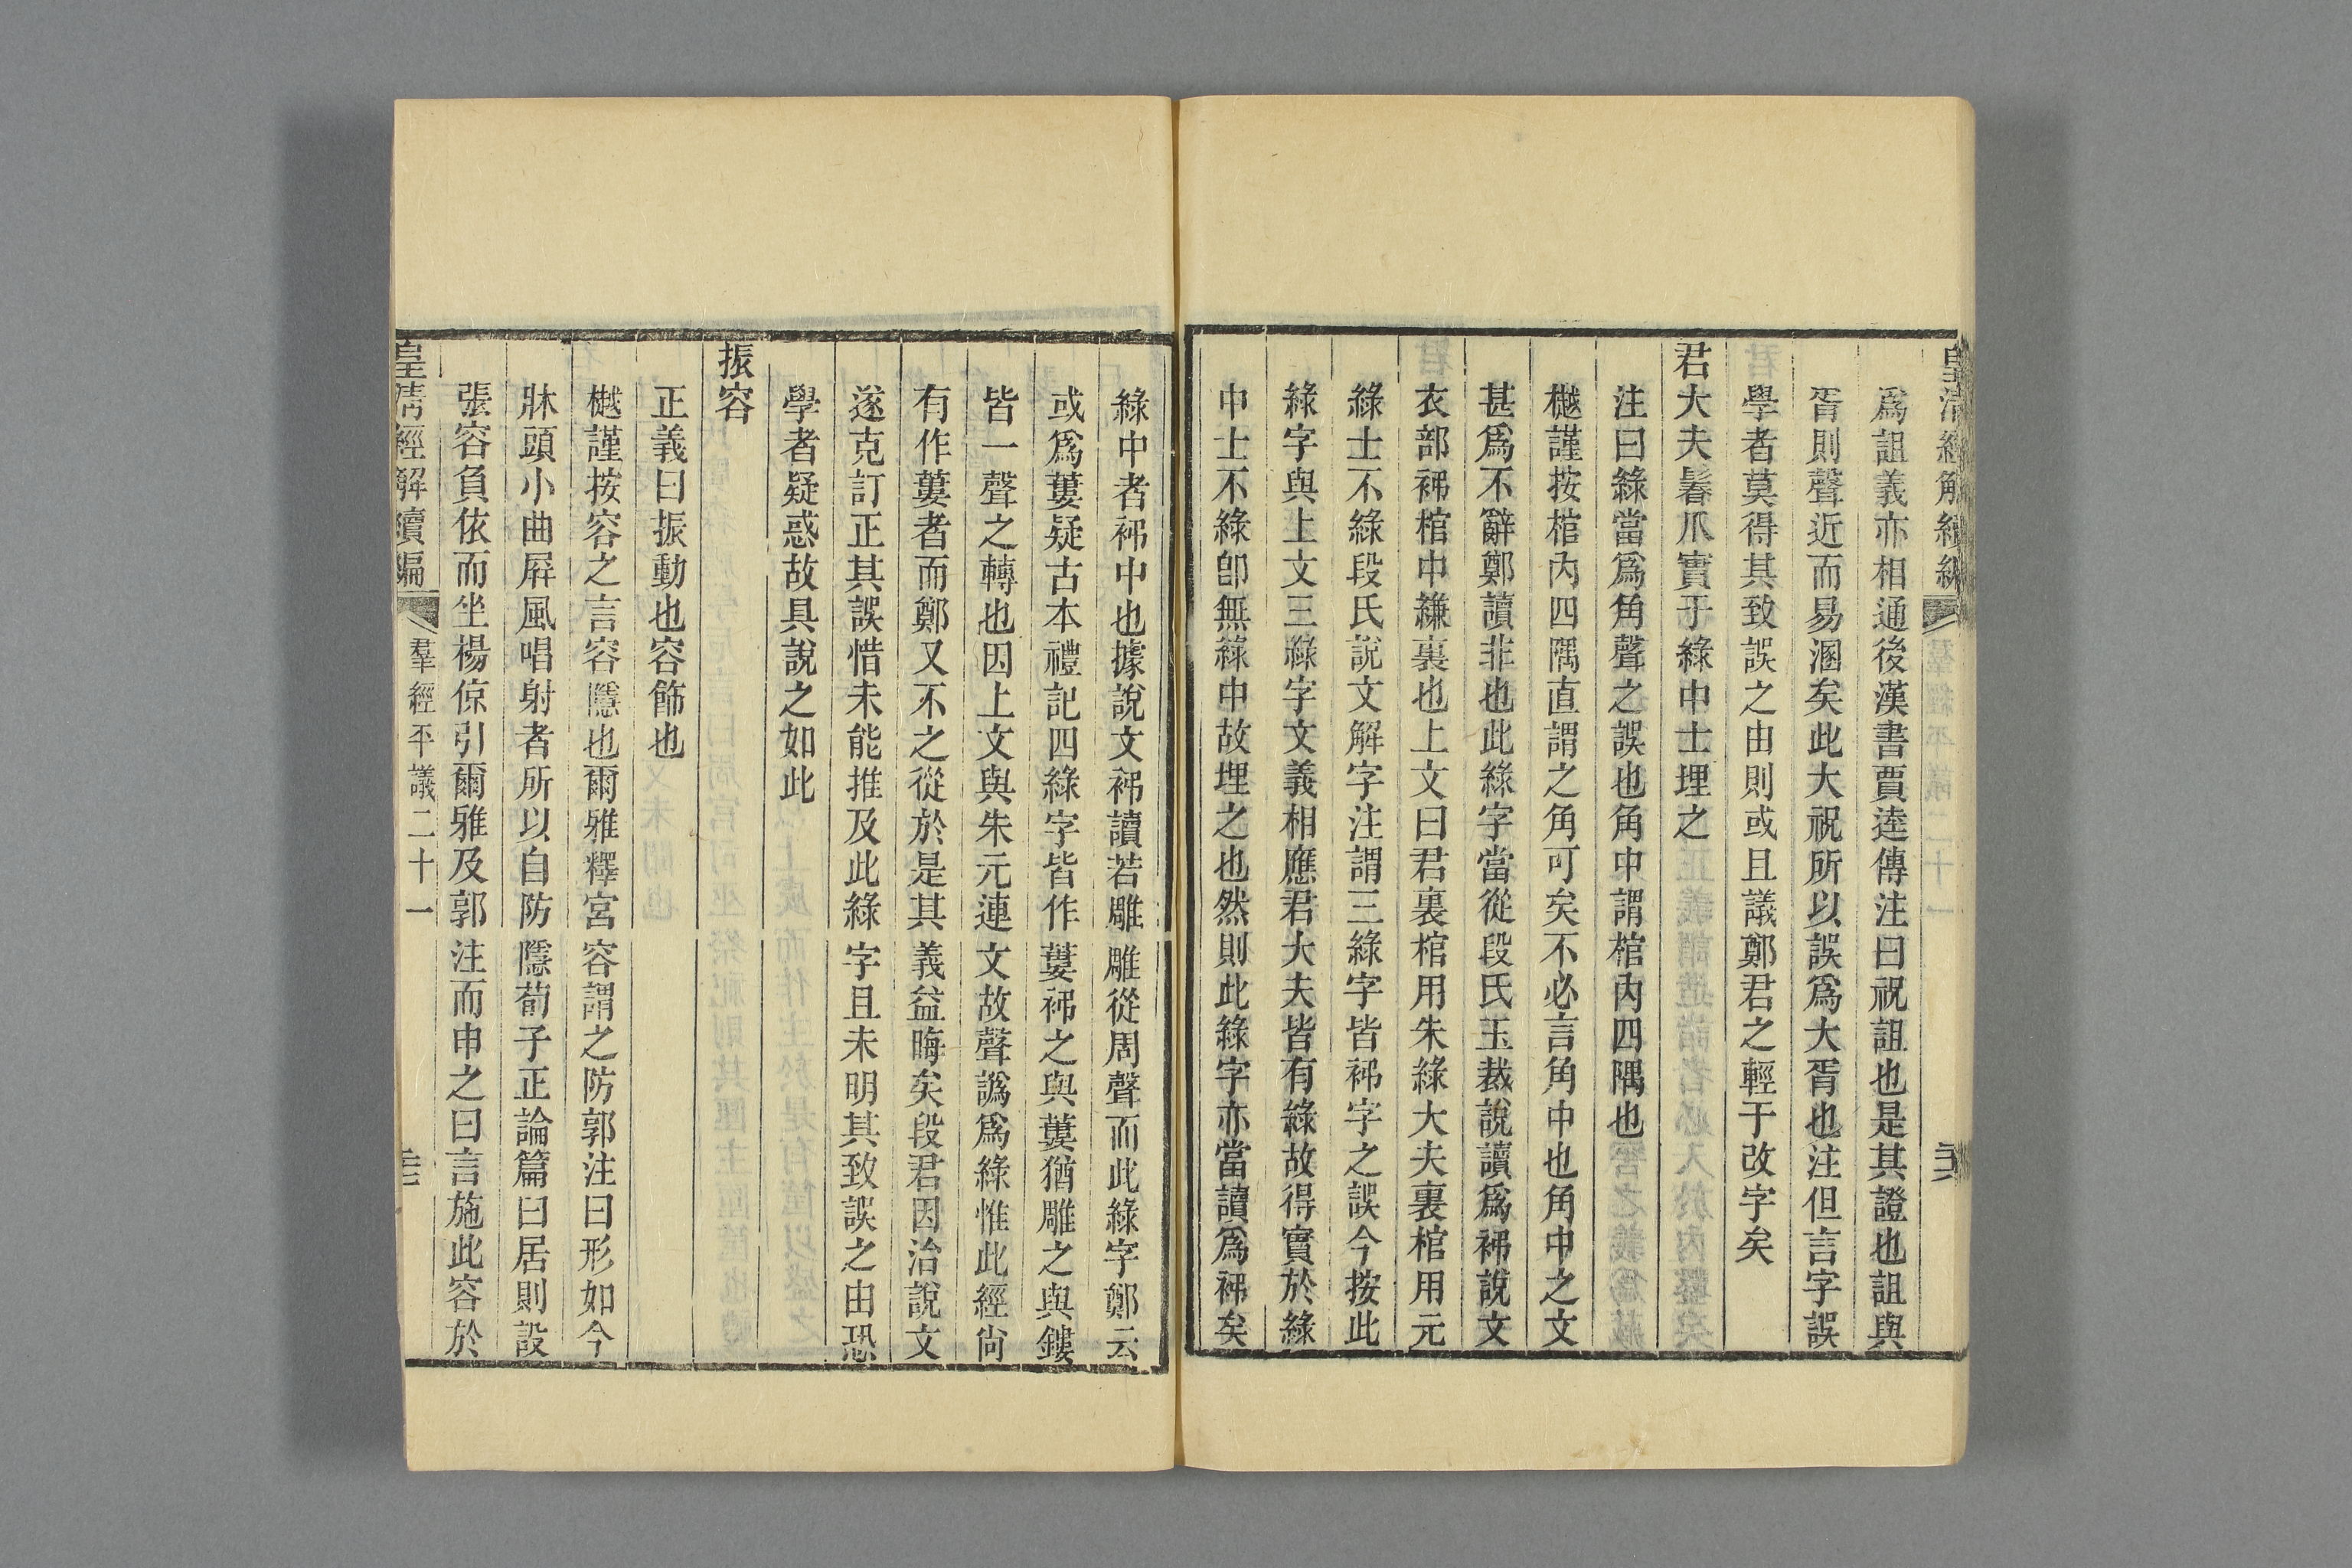 爲詛義亦相通後漢書賈逵傳注曰祝詛也是其證也詛與
胥則聲近而易溷矣此大祝所以誤爲大胥也注但言字誤
學者莫得其致誤之由則或且議鄭君之輕于改字矣
君大夫鬊爪實于綠中士埋之
注曰綠當爲角聲之誤也角中謂棺內四隅也
樾謹按棺內四隅直謂之角可矣不必言角中也角中之文
甚爲不辭鄭讀非也此綠字當從段氏玉裁說讀爲䘵說文
衣部䘵棺中縑裏也上文曰君裏棺用朱綠大夫裏棺用元
綠士不綠段氏說文解字注謂三綠字皆䘵字之誤今按此
綠字與上文三綠字文義相應君大夫皆有綠故得實於綠
中上不綠卽無綠中故埋之也然則此綠字亦當讀爲䘵矣
綠中者䘵中也據說文䘵讀若雕雕從周聲而此綠字鄭云
或爲蔞疑古本禮記四綠字皆作蔞䘵之與蔞猶雕之與鏤
皆一聲之轉也因上文與朱元連文故聲譌爲綠惟此經尙
有作蔞者而鄭又不之從於是其義益晦矣段君因治說文
遂克訂正其誤惜未能推及此綠字且未明其致誤之由恐
學者疑惑故具說之如此
振容
正義曰振動也容飾也
樾謹按容之言容隱也爾雅釋宮容謂之防郭注曰形如今
牀頭小曲屛風唱射者所以自防隱荀子正論篇曰居則設
張容負依而坐楊倞引爾雅及郭注而申之曰言施此容於
皇淸經解續編 羣經平議二十一